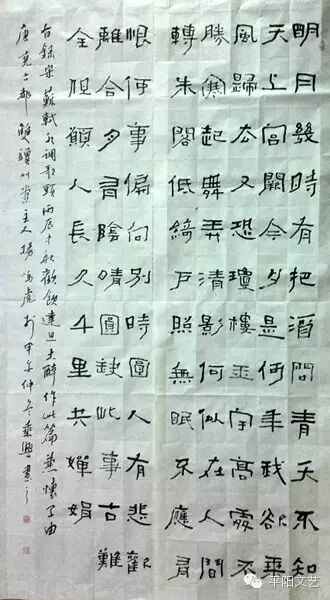 明月幾時有把酒問青天不知
天上宮闕今夕是何年我欲乘
風歸去又恐瓊樓玉宇高處不
勝寒起舞弄清影何似在人間
轉朱閣低綺戶照無眠不應有
恨何事偏向別時圓人有悲歡
離合月有陰晴圓缺此事古難
全但願人長久千里共嬋娟
右錄宋蘇軾水調歌頭丙辰中秋歡飲達旦大醉作此篇兼懷子由
主人楊於甲午仲冬乘興書之
平阳文艺